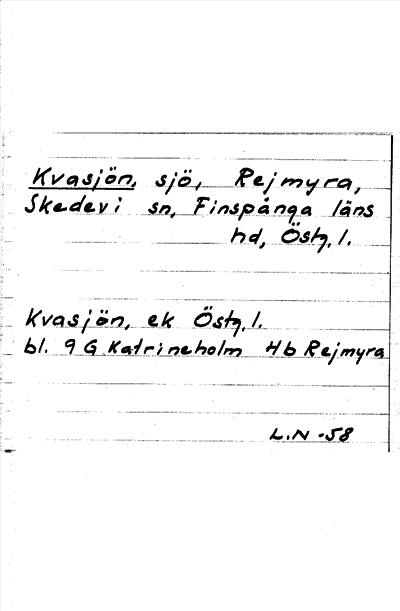 Kvasjön, sjö, Rejmyra,
Skedevi sn, Finspånga läns
hd, Östg. l.
Kvasjön, ek Östg. l.
bl. 9 G Katrineholm Hb Rejmyra
L.N -58